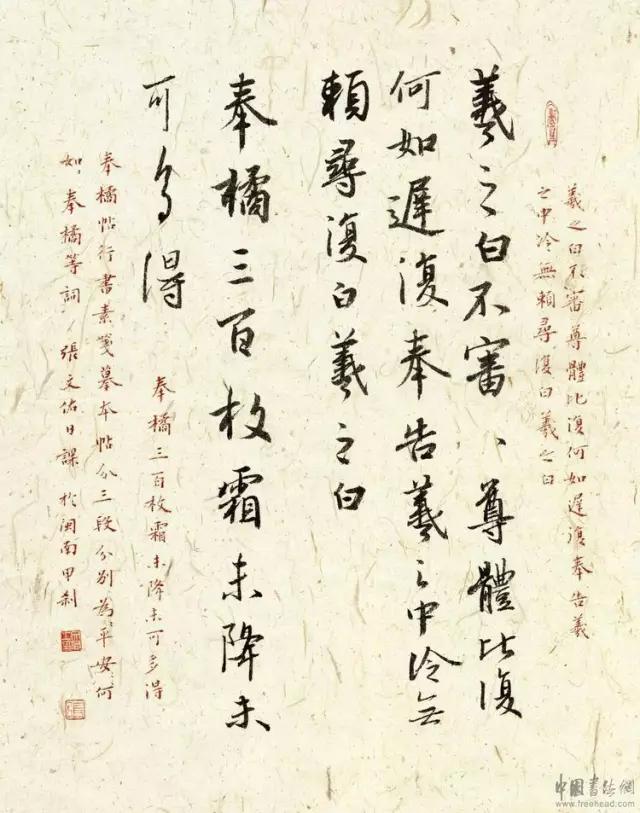 羲之白不審尊體比復何如遲復奉告羲
之中冷無賴尋復白羲之白
羲之白不審、尊體比復
何如遲復奉告羲之中冷無
賴尋復白羲之白
奉橘三百枚霜未降未
可多得
奉橘三百枚霜未降未可多得
奉橘帖行書素箋摹本帖分三段分別為平安何
如、奉橘等詞張文佑日課於閩南甲利
中国书法网
www.freehead.com